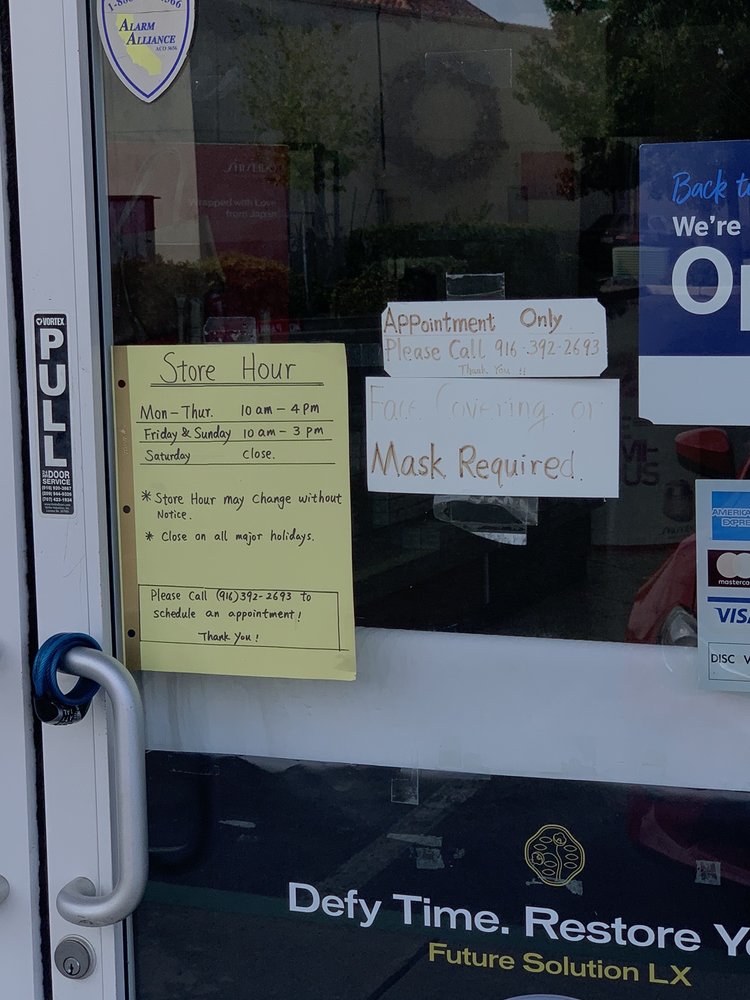 ALARM
ALLIANCE
ACO 3656
SHISEIDO
Wrapped with Love
from Japan
Back
We're
VORTEX
PULL
DOOR
SERVICE
Appointment Only
Please Call 916-392-2693
Thank You !!
Face Covering or
Mask Required.
Store Hour
Mon-Thur. 10 am - 4 pm
Friday & Sunday 10 am - 3 pm
Saturday Close.
* Store Hour may Change without
Notice.
* Close on all major holidays.
Please Call (916)392-2693 to
schedule an appointment!
Thank You!
AMERICAN
EXPRE
mastercar
VISA
DISC
Defy Time. Restore
Future Solution LX